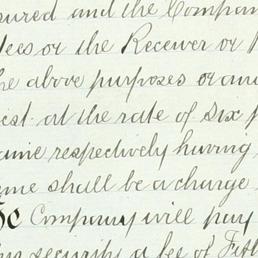 sured and the Company
tees or the Receiver or
he above purposes or any
est at the rate of six p
ame respectively having
ame shall be a charge
Company will pay
security a fee of Fift